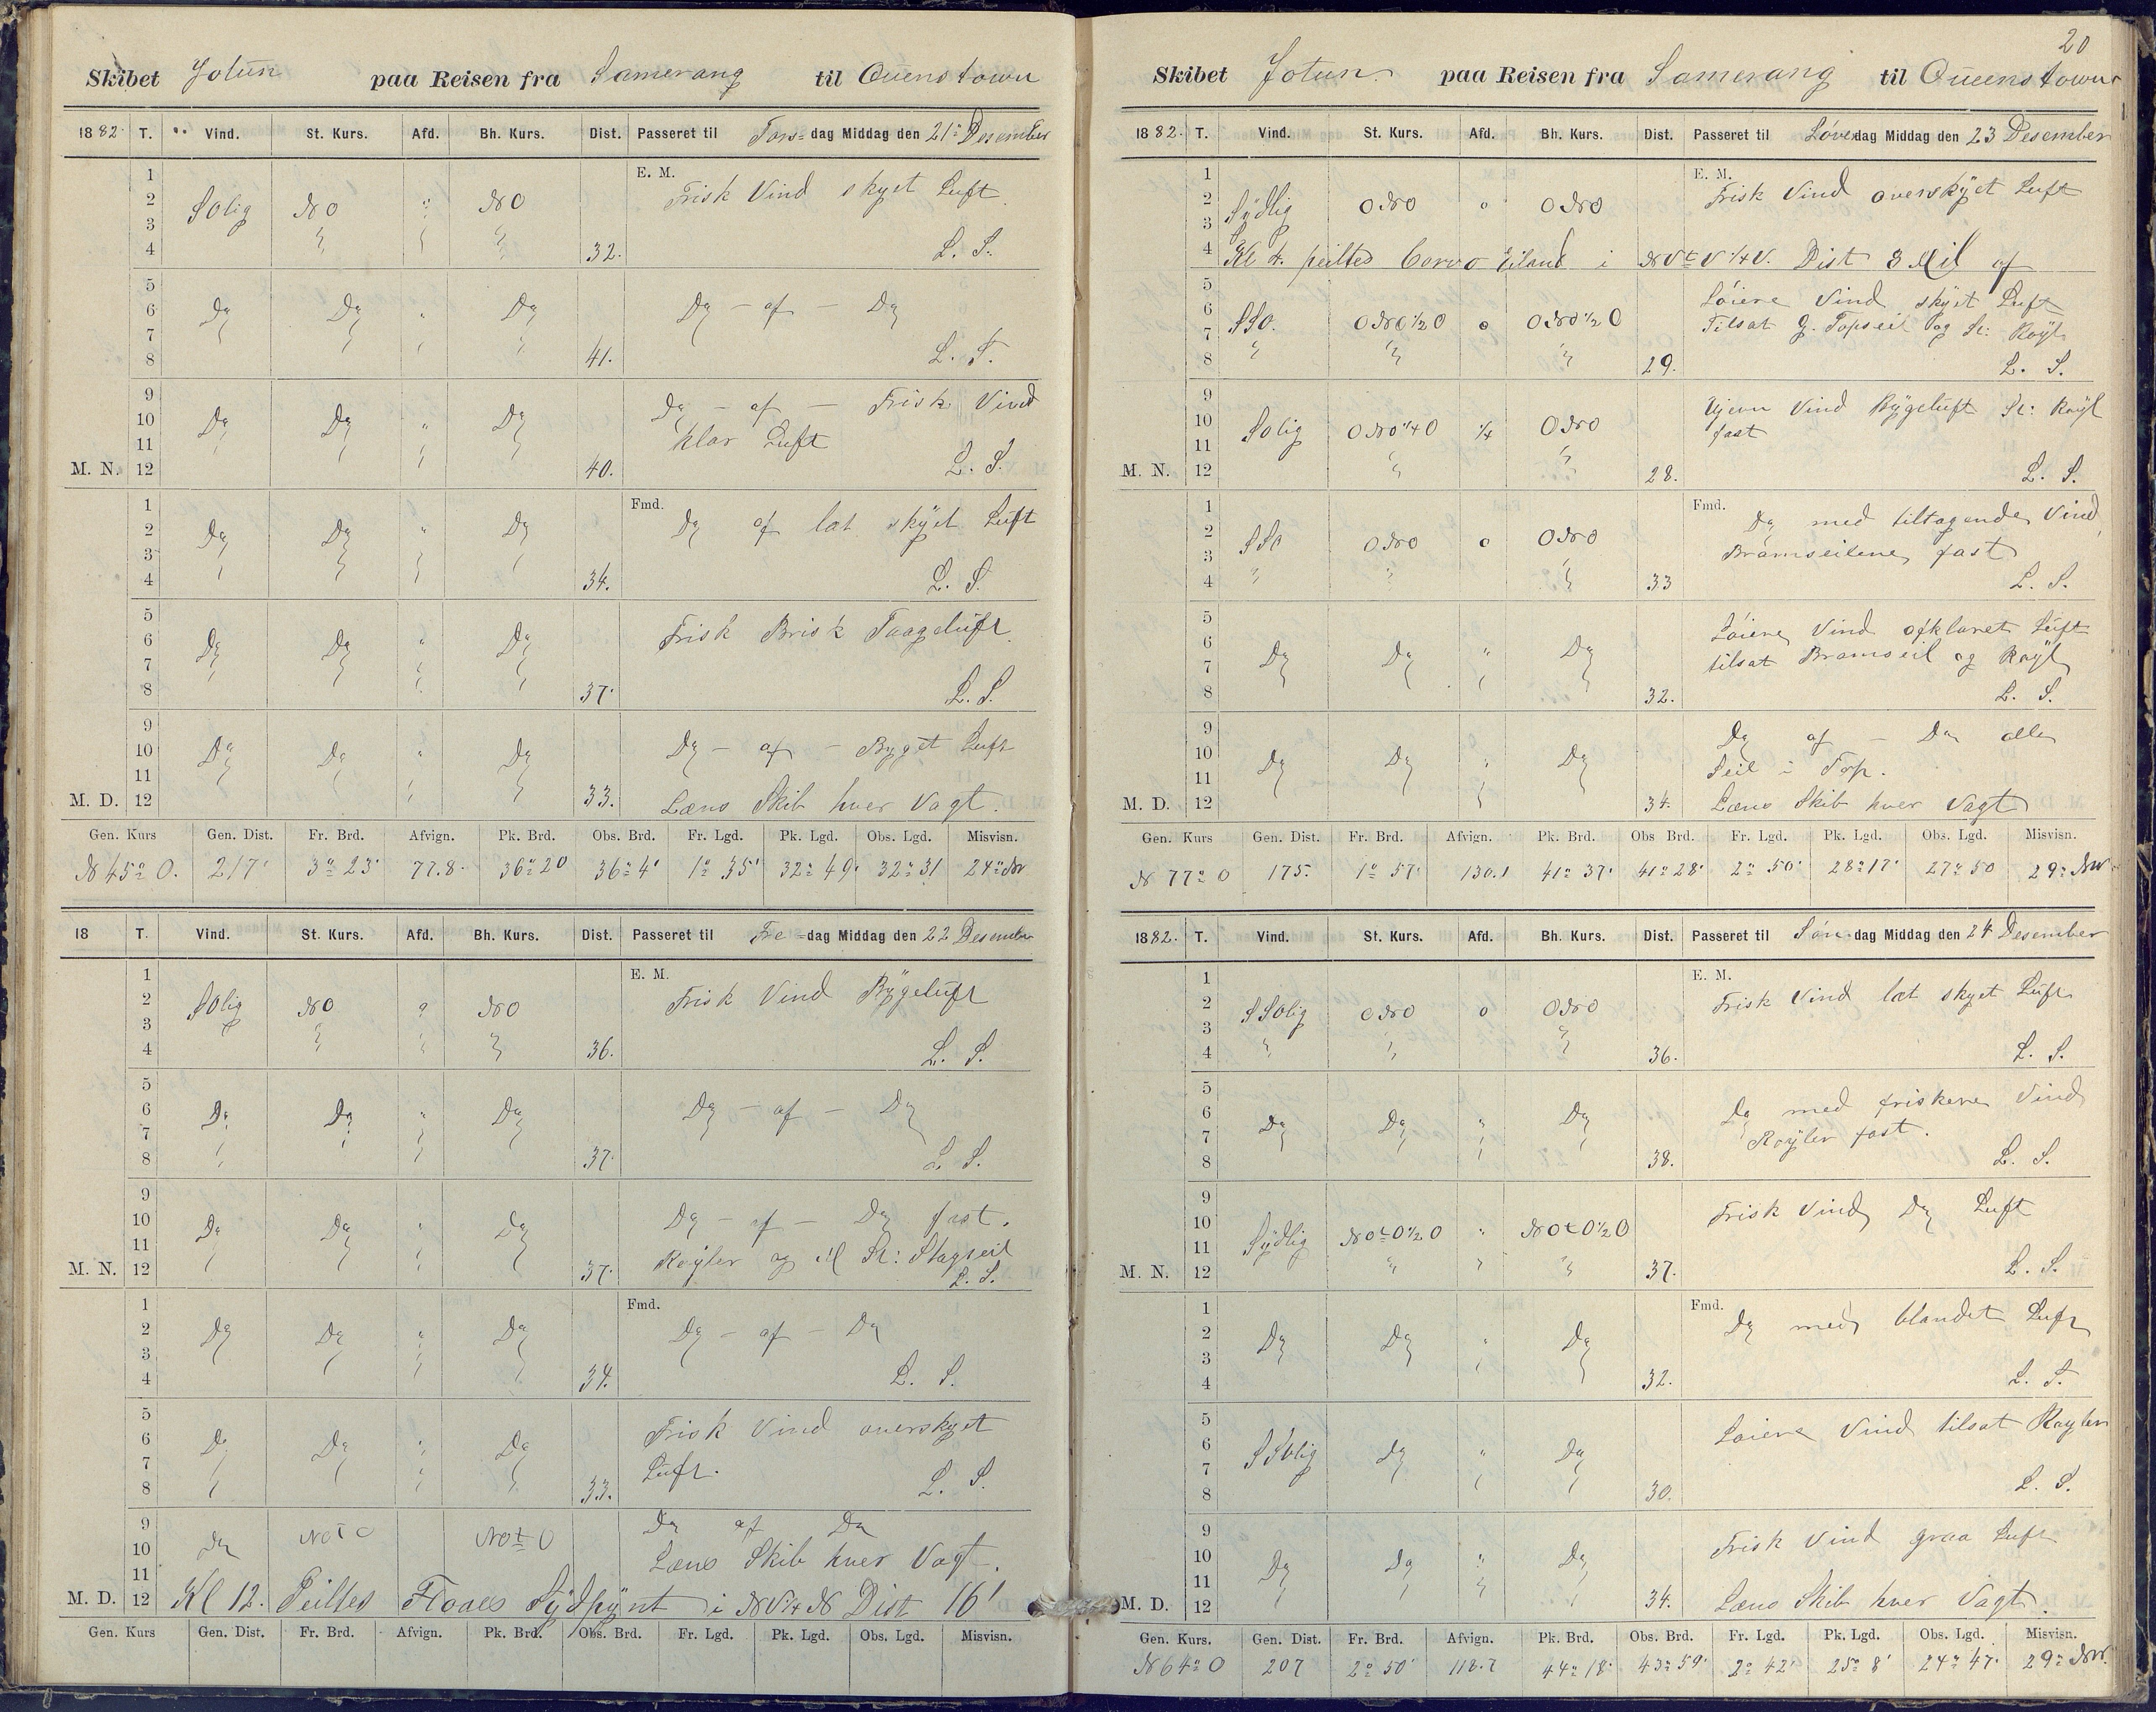 20
Skibet Jotun paa Reisen fra Samerang til Queenstown
1882 T. Vind. St. Kurs. Afd. Bh. Kurs. Dist. Passeret til Tors-dag Middag den 21 Desember
E. M.
1
2 SOlig NO " NO Frisk Vind skyet Luft
3
4 32. L. S.
5
6 Do Do " Do Do - af - Do
7
8 41. L. S.
9
10 Do Do " Do Do - af - Frisk Vind
11 klar Luft
M. N. 12 40. L. S.
Fmd.
1
2 Do Do " Do Do af let skÿet Luft
3
4 34. L. S.
5
6 Do Do " Do Frisk Brisk Taageluft
7
8 37. L. S.
9
10 Do Do " Do Do - af - Byget Luft
11
M. D. 12 33. Læns Skib hver Vagt.
Gen. Kurs Gen. Dist. Fr. Brd. Afvign. Pk. Brd. Obs. Brd. Fr. Lgd. Pk. Lgd. Obs. Lgd. Misvisn.
N 45° O. 217' 3° 23' 77.8. 36° 20 36° 4' 1° 35' 32° 49' 32° 31 24° NW
18 T. Vind. St. Kurs. Afd. Bh. Kurs. Dist. Passeret til Fre-dag Middag den 22 Desember
E. M.
1
2 SOlig NO " NO Frisk Vind Bÿgeluft
3
4 36. L. S.
5
6 Do Do " Do Do - af - Do
7
8 37. L. S.
9
10 Do Do " Do Do - af - Do fast.
11 Røyler og M St: Stagseil
M. N. 12 37. L. S.
Fmd.
1
2 Do Do " Do Do - af - Do
3
4 34. L. S.
5
6 Do Do " Do Frisk Vind overskyet
7 Luft.
8 33. L. S.
9 Do af Do
10 Do NOtO NOtO Læns Skib hver Vagt.
11
M. D. 12 Kl 12. Peiltes Floaes Sÿdpÿnt i NV¼N Dist 16'
Gen. Kurs Gen. Dist. Fr. Brd. Afvign. Pk. Brd. Obs. Brd. Fr. Lgd. Pk. Lgd. Obs. Lgd. Misvisn.
Skibet Jotun. paa Reisen fra Samerang til Queenstown
1882. T. Vind. St. Kurs. Afd. Bh. Kurs. Dist. Passeret til Løverdag Middag den 23 Desember
E. M.
1
2 Sÿdlig ONO o ONO Frisk Vind overskÿet Luft
3
4 Kl 4. peiltes Corvo Eiland i NVtV¼V. Dist 8 Mil af
5 Løiere Vind skÿet Luft
6 SSO. ONO½O o ONO½O Tilsat G. Topseil og St: Røÿl
7
8 29. L. S.
9 Ujevn Vind Bÿgeluft St: Røÿl
10 SOlig ONO¼O ¼ ONO fast
11
M. N. 12 28. L. S.
Fmd.
1 Do med tiltagende Vind
2 SSO ONO o ONO Bramseilene fast
3
4 33 L. S.
5 Løiere Vind afklaret Luft
6 Do Do " Do tilsat Bramseil og Røÿl
7
8 32. L. S.
9 Do af - Do alle
10 Do Do " Do Seil i Top.
11
M. D. 12 34. Læns Skib hver Vagt
Gen. Kurs Gen. Dist. Fr. Brd. Afvign. Pk. Brd. Obs Brd. Fr. Lgd. Pk. Lgd. Obs. Lgd. Misvisn.
N 77° O 175. 1° 57' 130.1 41° 37' 41° 28' 2° 50' 28° 17' 27° 50 29° NW
1882. T. Vind. St. Kurs. Afd. Bh. Kurs. Dist. Passeret til Søn-dag Middag den 24 Desember
E. M.
1
2 SSOlig ONO o ONO Frisk Vind let skyet Luft
3
4 36. L. S.
5
6 Do Do " Do Do med friskere Vind
7 Røÿler fast.
8 38. L. S.
9
10 Sÿdlig NOtO½O " NOtO½O Frisk Vind Do Luft
11
M. N. 12 37. L. S.
Fmd.
1
2 Do Do " Do Do med blandet Luft
3
4 32. L. S.
5
6 SSOlig Do " Do Løiere Vind tilsat Røyler
7
8 30. L. S.
9
10 Do Do " Do Frisk Vind graa Luft
11
M. D. 12 34. Læns Skib hver Vagt.
Gen. Kurs. Gen. Dist. Fr. Brd. Afvign. Pk. Brd. Obs. Brd. Fr. Lgd. Pk. Lgd. Obs. Lgd. Misvisn.
N 64° O 207 2° 50' 118.7 44° 18' 43° 59' 2° 42' 25° 8' 24° 47' 29° NW.